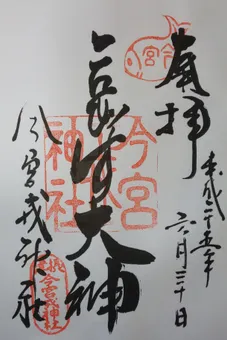 奉拝
平成二十五年
六月三十日
大神
今宮戎神社
今宮
神社
今宮戎神社